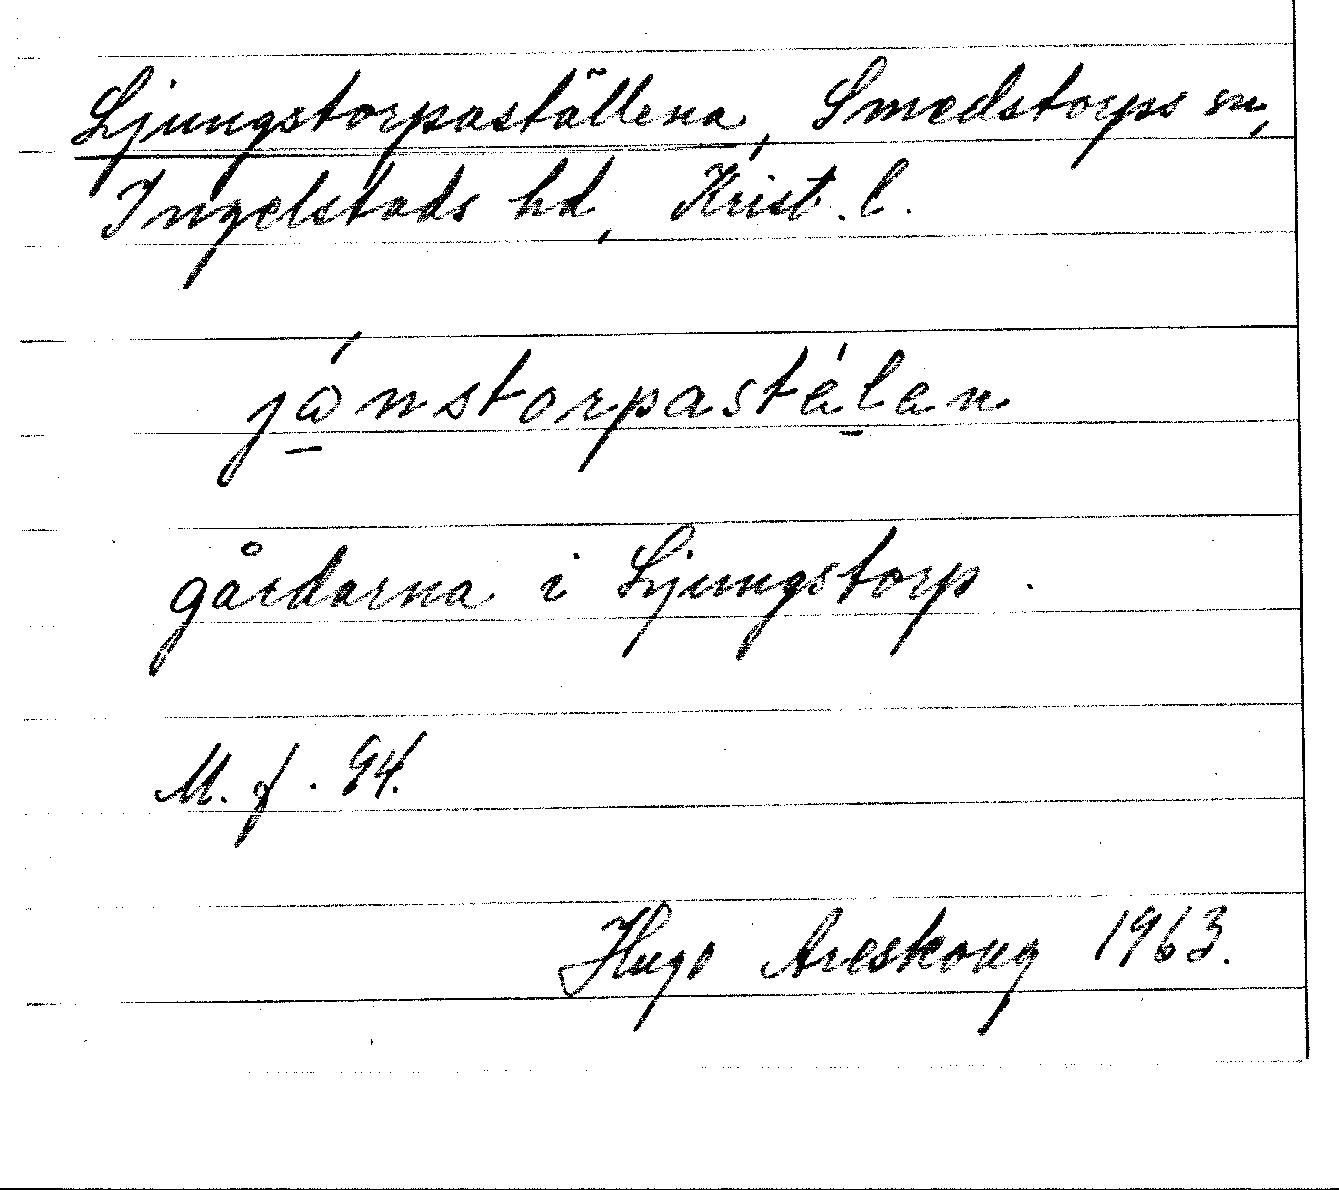 Ljungstorpaställena, Smedstorps sn,
Ingelstads hd, Krist. l.
jónstorpastélan
gårdarna i Ljungstorp.
M. f. 94.
Hugo Areskoug 1963.